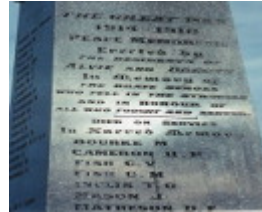 THE GREAT WAR
1914-1918
PEACE MEMORIAL
Erected by
THE RESIDENTS OF
ALVIE AND
In Memory of
THE BRAVE HEROES
WHO FELL IN THE
AND IN HONOUR OF
ALL WHO FOUGHT AND SERVED
DIED ON SERVICE
In Sacred Memory
BOURKE M
CAMERON H
FISH C. V
FISH U. M
INGLIS T. G
MASON J
MATHESON D F